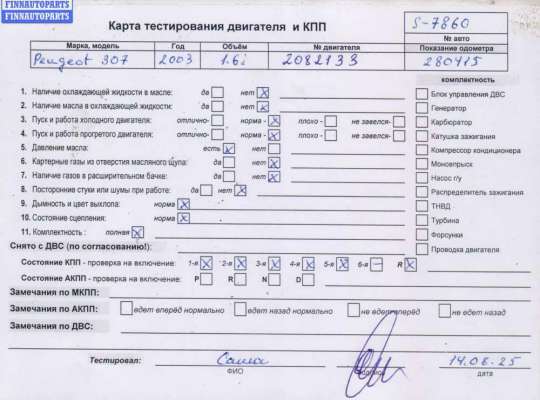 FINNAUTOPARTS
FINNAUTOPARTS
Карта тестирования двигателя и КПП
S-7860
№ авто
Марка, модель Год Объём № двигателя Показание одометра
Peugeot 307 2003 1.6i 2082133 280415
комплектность
1. Наличие охлаждающей жидкости в масле: да нет
2. Наличие масла в охлаждающей жидкости: да нет
3. Пуск и работа холодного двигателя: отлично- норма - плохо - не завелся-
4. Пуск и работа прогретого двигателя: отлично- норма - плохо - не завелся-
5. Давление масла: есть нет
6. Картерные газы из отверстия масляного щупа: да нет
7. Наличие газов в расширительном бачке: да нет
8. Посторонние стуки или шумы при работе: да нет
9. Дымность и цвет выхлопа: норма
10. Состояние сцепления: норма
11. Комплектность : полная
Блок управления ДВС
Генератор
Карбюратор
Катушка зажигания
Компрессор кондиционера
Моновпрыск
Насос г/у
Распределитель зажигания
ТНВД
Турбина
Форсунки
Проводка двигателя
Снято с ДВС (по согласованию!):
Состояние КПП - проверка на включение: 1-я 2-я 3-я 4-я 5-я 6-я R
Состояние АКПП - проверка на включение: P R N D
Замечания по МКПП:
Замечания по АКПП: едет вперёд нормально едет назад нормально не едет вперёд не едет назад
Замечания по ДВС:
Тестировал: Саша 14.08.25
ФИО подпись дата